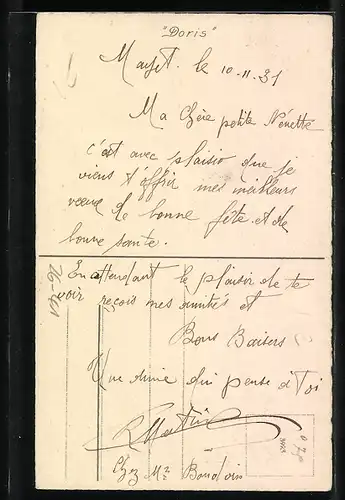 "Doris"
Mayet. le 10.11.31
Ma Chère petite Nénette
c'est avec plaisir que je
viens t'offrir mes meilleurs
vœux de bonne fête et de
bonne santé.
En attendant le plaisir de te
voir reçois mes amitiés et
Bons Baisers
Une amie qui pense à Toi
Chez Mr Baudoin
26-41